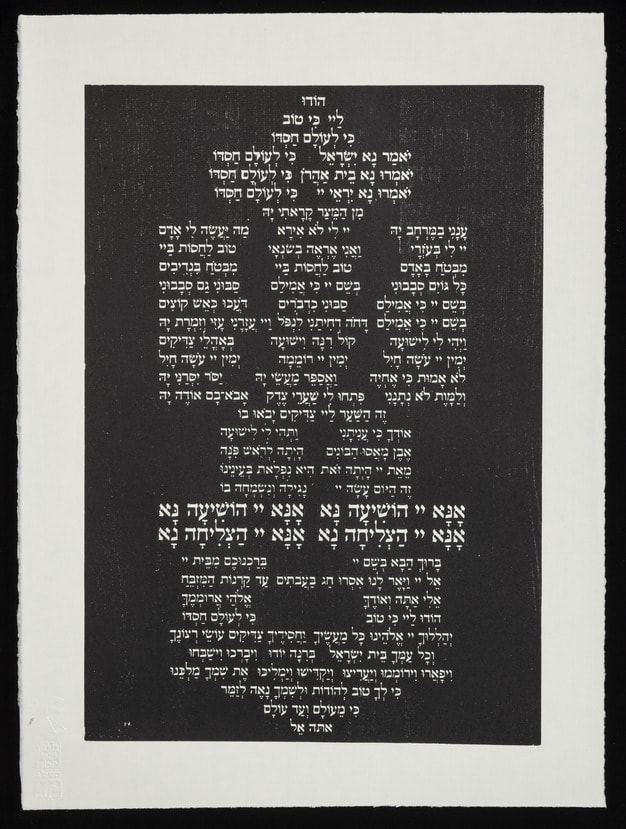 הודו
לַיי כִּי טוֹב
כִּי לְעוֹלָם חַסְדּוֹ
יֹאמַר נָא יִשְׂרָאֵל כִּי לְעוֹלָם חַסְדּוֹ
יֹאמְרוּ נָא בֵית אַהֲרֹן כִּי לְעוֹלָם חַסְדּוֹ
יֹאמְרוּ נָא יִרְאֵי יי כִּי לְעוֹלָם חַסְדּוֹ
מִן הַמֵּצַר קָרָאתִי יָּהּ
עָנָנִי בַמֶּרְחָב יָהּ יי לִי לֹא אִירָא מַה יַּעֲשֶׂה לִי אָדָם
יי לִי בְּעֹזְרָי וַאֲנִי אֶרְאֶה בְשֹׂנְאָי טוֹב לַחֲסוֹת בַּיי
מִבְּטֹחַ בָּאָדָם טוֹב לַחֲסוֹת בַּיי מִבְּטֹחַ בִּנְדִיבִים
כָּל גּוֹיִם סְבָבוּנִי בְּשֵׁם יי כִּי אֲמִילַם סַבּוּנִי גַם סְבָבוּנִי
בְּשֵׁם יי כִּי אֲמִילַם סַבּוּנִי כִדְבֹרִים דֹּעֲכוּ כְּאֵשׁ קוֹצִים
בְּשֵׁם יי כִּי אֲמִילַם דַּחֹה דְחִיתַנִי לִנְפֹּל וַיי עֲזָרָנִי עָזִּי וְזִמְרָת יָהּ
וַיְהִי לִי לִישׁוּעָה קוֹל רִנָּה וִישׁוּעָה בְּאָהֳלֵי צַדִּיקִים
יְמִין יי עֹשָׂה חָיִל יְמִין יי רוֹמֵמָה יְמִין יי עֹשָׂה חָיִל
לֹא אָמוּת כִּי אֶחְיֶה וַאֲסַפֵּר מַעֲשֵׂי יָהּ יַסֹּר יִסְּרַנִּי יָּהּ
וְלַמָּוֶת לֹא נְתָנָנִי פִּתְחוּ לִי שַׁעֲרֵי צֶדֶק אָבֹא־בָם אוֹדֶה יָהּ
זֶה הַשַּׁעַר לַיי צַדִּיקִים יָבֹאוּ בוֹ
אוֹדְךָ כִּי עֲנִיתָנִי וַתְּהִי לִי לִישׁוּעָה
אֶבֶן מָאֲסוּ הַבּוֹנִים הָיְתָה לְרֹאשׁ פִּנָּה
מֵאֵת יי הָיְתָה זֹּאת הִיא נִפְלָאת בְּעֵינֵינוּ
זֶה הַיּוֹם עָשָׂה יי נָגִילָה וְנִשְׂמְחָה בוֹ
אָנָּא יי הוֹשִׁיעָה נָּא אָנָּא יי הוֹשִׁיעָה נָּא
אָנָּא יי הַצְלִיחָה נָא אָנָּא יי הַצְלִיחָה נָא
בָּרוּךְ הַבָּא בְּשֵׁם יי בֵּרַכְנוּכֶם מִבֵּית יי
אֵל יי וַיָּאֶר לָנוּ אִסְרוּ חַג בַּעֲבֹתִים עַד קַרְנוֹת הַמִּזְבֵּחַ
אֵלִי אַתָּה וְאוֹדֶךָּ אֱלֹהַי אֲרוֹמְמֶךָּ
הוֹדוּ לַיי כִּי טוֹב כִּי לְעוֹלָם חַסְדּוֹ
יְהַלְלוּךָ יי אֱלֹהֵינוּ כָּל מַעֲשֶׂיךָ וַחֲסִידֶיךָ צַדִּיקִים עוֹשֵׂי רְצוֹנֶךָ
וְכָל עַמְּךָ בֵּית יִשְׂרָאֵל בְּרִנָּה יוֹדוּ וִיבָרְכוּ וִישַׁבְּחוּ
וִיפָאֲרוּ וִירוֹמְמוּ וְיַעֲרִיצוּ וְיַקְדִּישׁוּ וְיַמְלִיכוּ אֶת שִׁמְךָ מַלְכֵּנוּ
כִּי לְךָ טוֹב לְהוֹדוֹת וּלְשִׁמְךָ נָאֶה לְזַמֵּר
כִּי מֵעוֹלָם וְעַד עוֹלָם
אתה אל